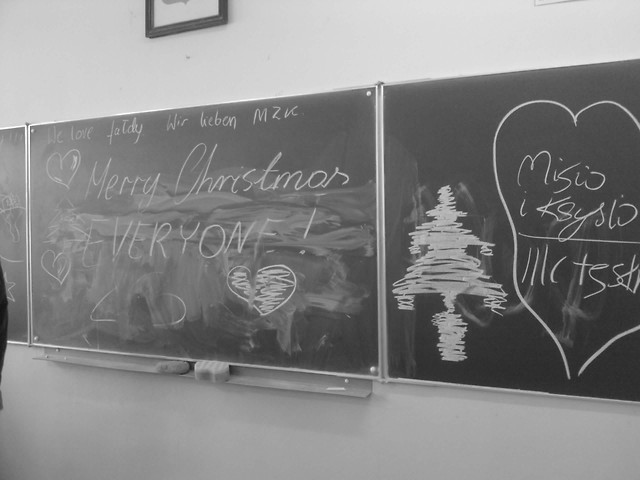 We love fałdy Wir lieben MZK.
Merry Christmas
EVERYONE!
Misio
i Ksysio